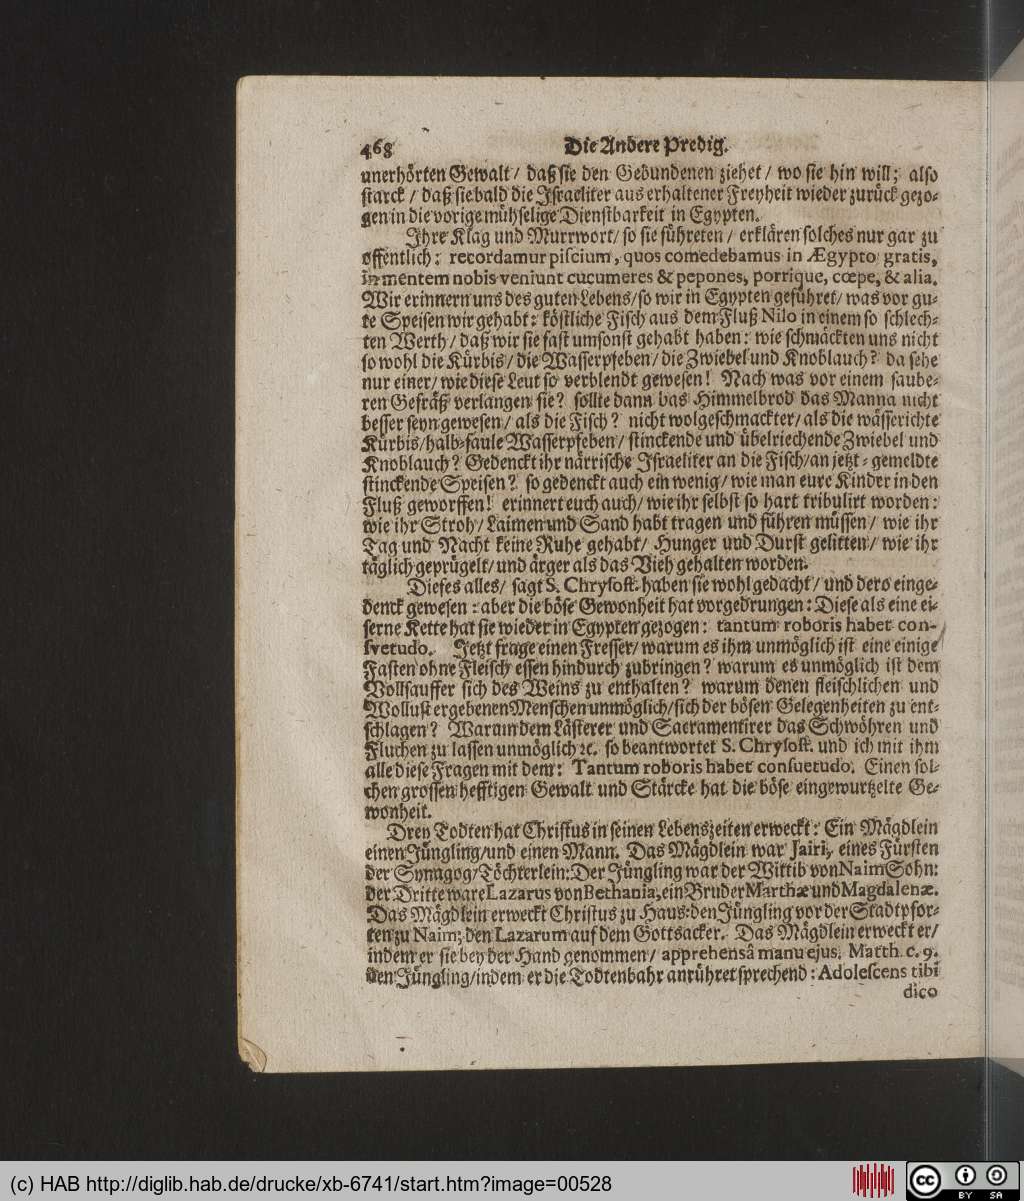 468 Die Andere Predig.
unerhörten Gewalt / daß sie den Gebundenen ziehet / wo sie hin will; also
starck / daß sie bald die Israeliter aus erhaltener Freyheit wieder zurück gezo-
gen in die vorige mühselige Dienstbarkeit in Egypten.
Ihre Klag und Murrwort / so sie führeten / erklären solches nur gar zu
offentlich: recordamur piscium, quos comedebamus in Ægypto gratis,
in mentem nobis veniunt cucumeres & pepones, porrique, cœpe, & alia.
Wir erinnern uns des guten Lebens / so wir in Egypten geführet / was vor gu-
te Speisen wir gehabt: köstliche Fisch aus dem Fluß Nilo in einem so schlech-
ten Werth / daß wir sie fast umsonst gehabt haben: wie schmäckten uns nicht
so wohl die Kürbis / die Wasserpfeben / die Zwiebel und Knoblauch? da sehe
nur einer / wie diese Leut so verblendt gewesen! Nach was vor einem saube-
ren Gefräß verlangen sie? sollte dann das Himmelbrod das Manna nicht
besser seyn gewesen / als die Fisch? nicht wolgeschmackter / als die wässerichte
Kürbis / halb-faule Wasserpfeben / stinckende und übelriechende Zwiebel und
Knoblauch? Gedenckt ihr närrische Israeliter an die Fisch / an jetzt-gemeldte
stinckende Speisen? so gedenckt auch ein wenig / wie man eure Kinder in den
Fluß geworffen! erinnert euch auch / wie ihr selbst so hart tribulirt worden:
wie ihr Stroh / Laimen und Sand habt tragen und führen müssen / wie ihr
Tag und Nacht keine Ruhe gehabt / Hunger und Durst gelitten / wie ihr
täglich geprügelt / und ärger als das Vieh gehalten worden.
Dieses alles / sagt S. Chrysost. haben sie wohl gedacht / und dero einge-
denck gewesen: aber die böse Gewonheit hat vorgedrungen: Diese als eine ei-
serne Kette hat sie wieder in Egypten gezogen: tantum roboris habet con-
svetudo. Jetzt frage einen Fresser / warum es ihm unmöglich ist eine einige
Fasten ohne Fleisch essen hindurch zubringen? warum es unmöglich ist dem
Vollsauffer sich des Weins zu enthalten? warum denen fleischlichen und
Wollust ergebenen Menschen unmöglich / sich der bösen Gelegenheiten zu ent-
schlagen? Warum dem Lästerer und Sacramentirer das Schwöhren und
Fluchen zu lassen unmöglich ꝛc. so beantwortet S. Chrysost. und ich mit ihm
alle diese Fragen mit dem: Tantum roboris habet consuetudo. Einen sol-
chen grossen hefftigen Gewalt und Stärcke hat die böse eingewurtzelte Ge-
wonheit.
Drey Todten hat Christus in seinen Lebenszeiten erweckt: Ein Mägdlein
einen Jüngling / und einen Mann. Das Mägdlein war Jairi, eines Fürsten
der Synagog / Töchterlein: Der Jüngling war der Wittib von Naim Sohn:
der Dritte ware Lazarus von Bethania, ein Bruder Marthæ und Magdalenæ.
Das Mägdlein erweckt Christus zu Haus: den Jüngling vor der Stadtpfor-
ten zu Naim; den Lazarum auf dem Gottsacker. Das Mägdlein erweckt er /
indem er sie bey der Hand genommen / apprehensâ manu ejus, Matth. c. 9.
den Jüngling / indem er die Todtenbahr anrühret sprechend: Adolescens tibi
dico
(c) HAB http://diglib.hab.de/drucke/xb-6741/start.htm?image=00528
cc BY SA